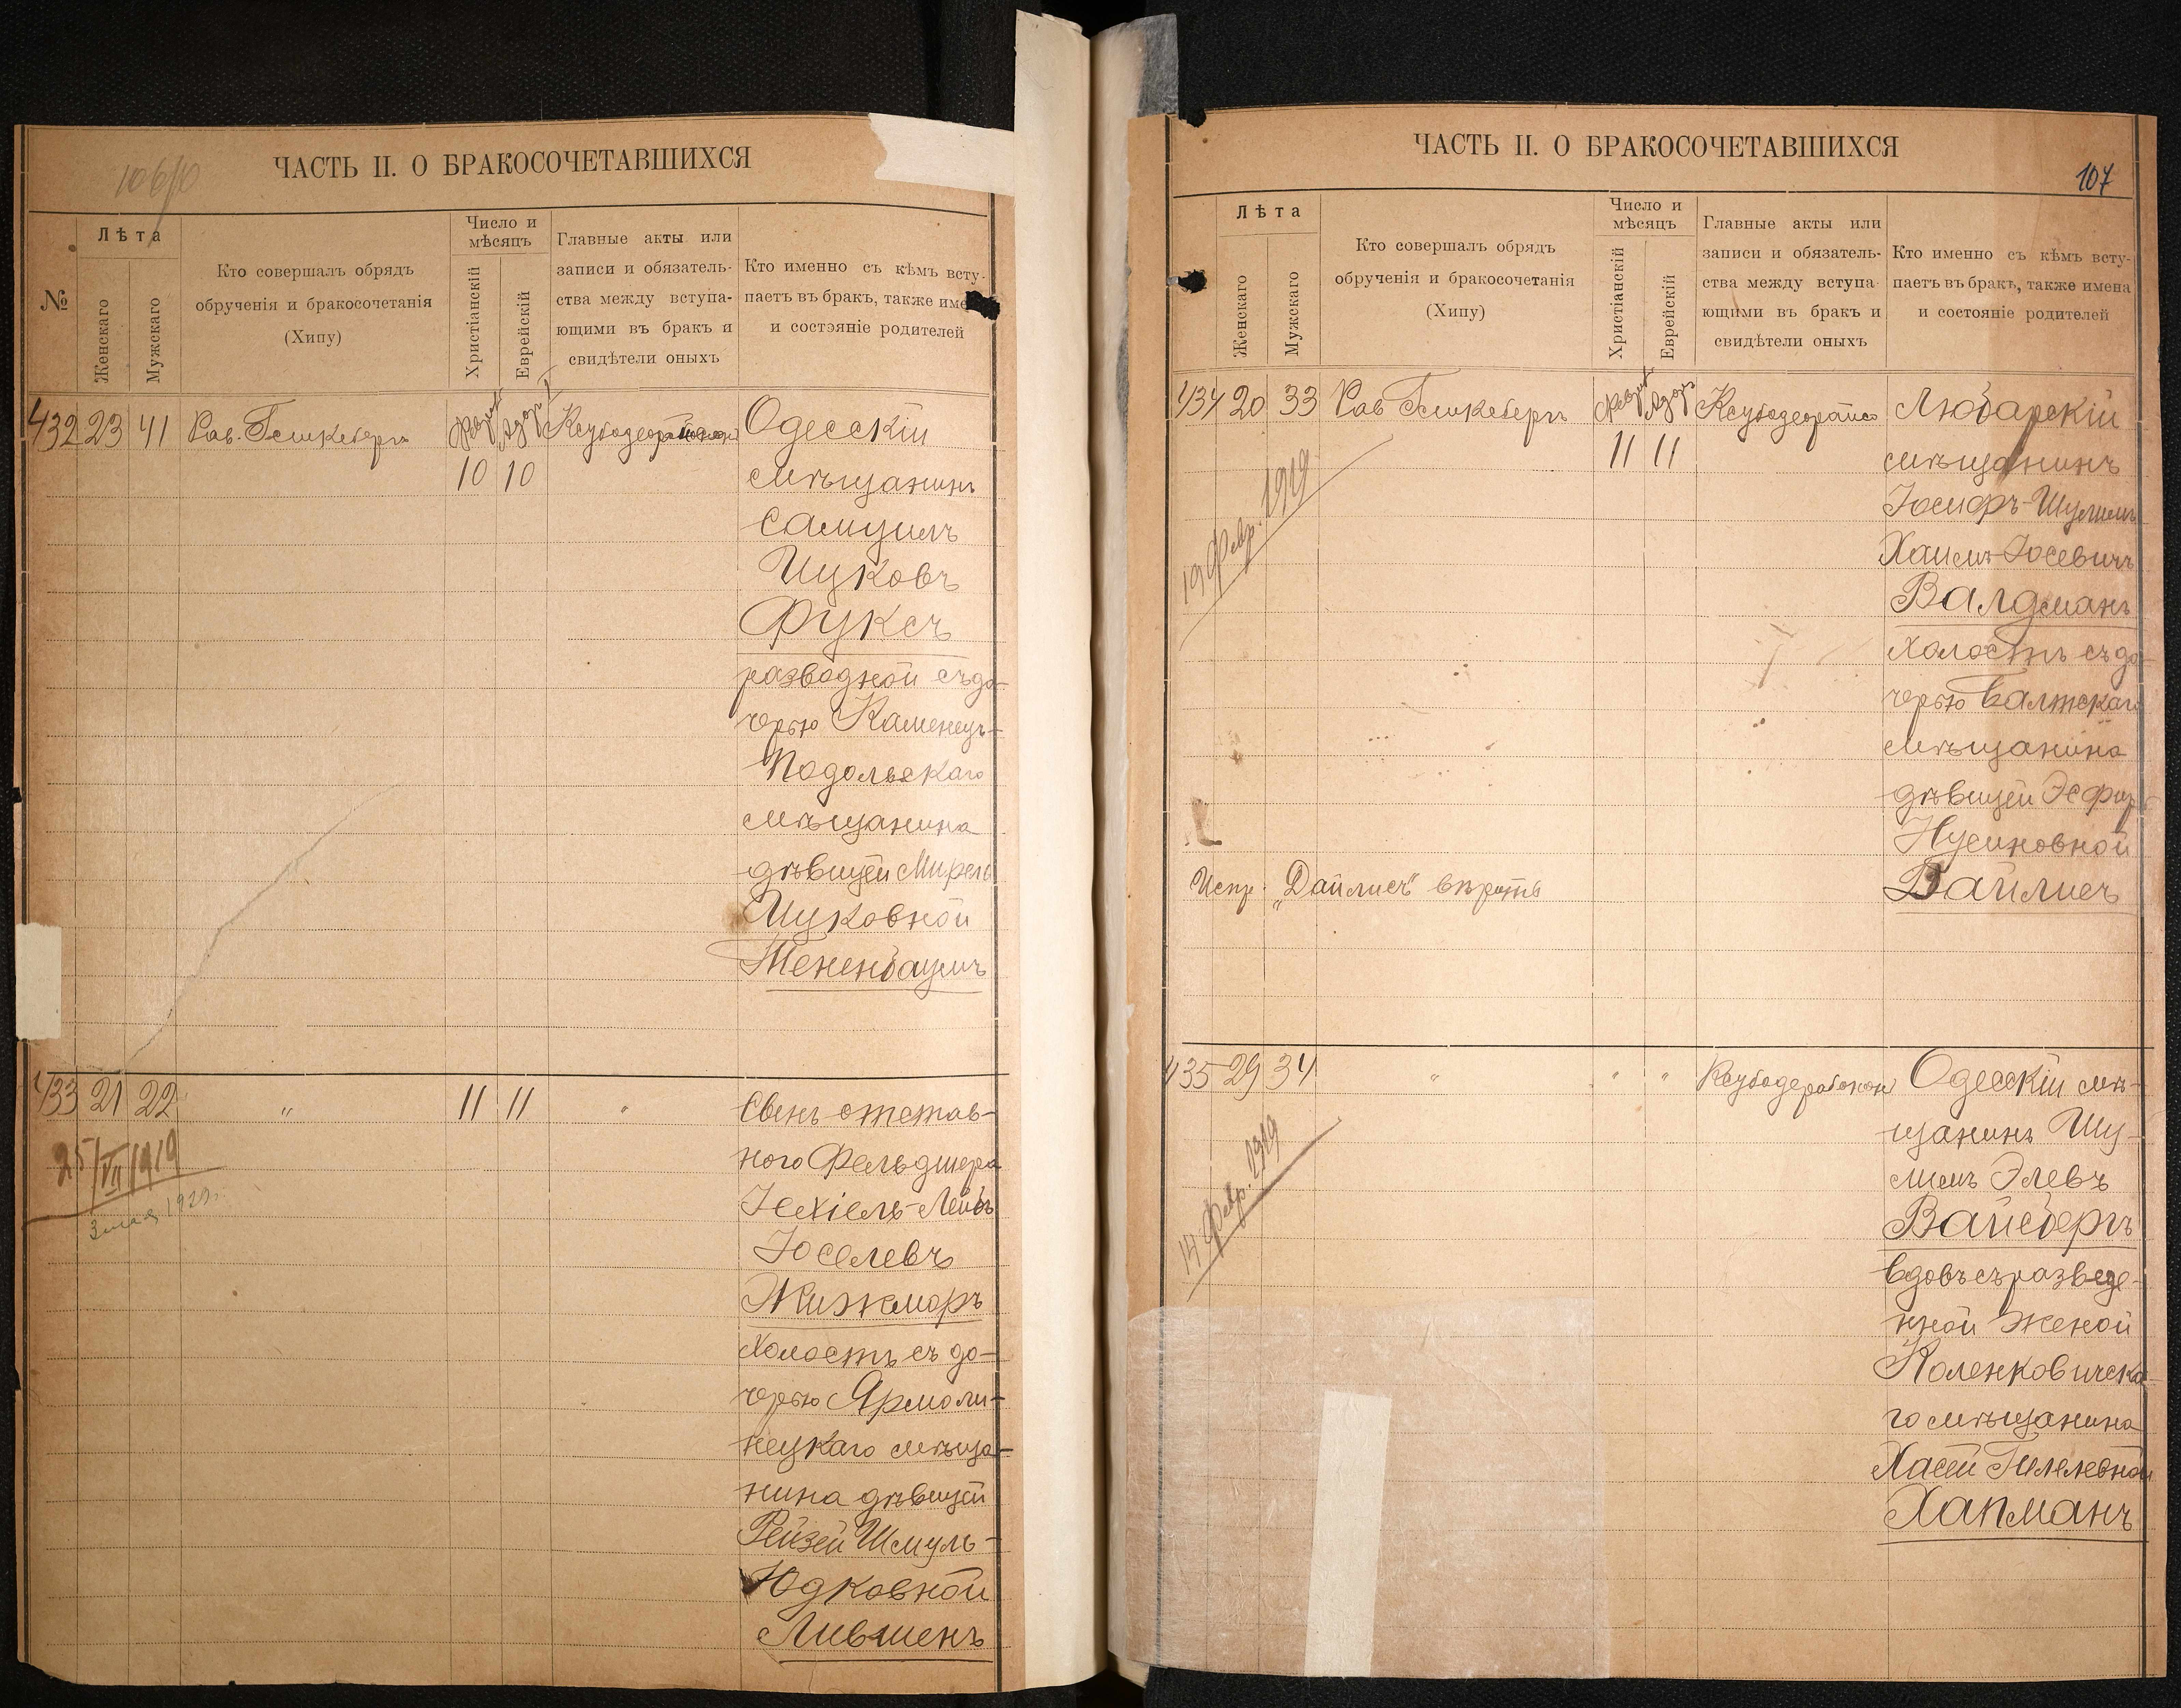 106/10
ЧАСТЬ II. О БРАКОСОЧЕТАВШИХСЯ
№
Лѣта
Женскаго
Мужскаго
Кто совершалъ обрядъ
обрученія и бракосочетанія
(Хипу)
Число и
мѣсяцъ
Христіанскій
Еврейскій
Главные акты или
записи и обязатель-
ства между вступа-
ющими въ бракъ и
свидѣтели оныхъ
Кто именно съ кѣмъ всту-
паетъ въ бракъ, также име
и состояніе родителей
432 23 41 Рав.
10 10
Одесскій
мѣщанинъ
Самуилъ
Ицковъ
Фуксъ
разводной съ до-
черью Каменецъ-
Подольскаго
мѣщанина
дѣвицей Мирель
Ицковной
Тененбаумъ
433 21 22 " 11 11 "
25/VII/1919
3 мая 1929г.
Сынъ отстав-
ного Фельдшера
Іехіель-Лейбъ
Іоселевъ
Жижморъ
Холостъ съ до-
черью Ярмоли-
нецкаго мѣща-
нина дѣвицей
Рейзей Шмуль-
Юдковной
Лившенъ
ЧАСТЬ II. О БРАКОСОЧЕТАВШИХСЯ
107
Лѣта
Женскаго
Мужскаго
Кто совершалъ обрядъ
обрученія и бракосочетанія
(Хипу)
Число и
мѣсяцъ
Христіанскій
Еврейскій
Главные акты или
записи и обязатель-
ства между вступа
ющими въ бракъ и
свидѣтели оныхъ
Кто именно съ кѣмъ всту-
паетъ въ бракъ, также имена
и состояніе родителей
434 20 33 Рав
11 11
19 Февр. 1919
Любарскій
мѣщанинъ
Іосифъ-Шулимъ
Хаимъ-Іосевичъ
Валдманъ
холостъ съ до-
черью Балтскаго
мѣщанина
дѣвицей Эсфирь
Нусиновной
Вайлисъ
Испр. "Вайлисъ" вѣрить
435 29 34 " " "
14 Февр. 1919
Одесскій мѣ-
щанинъ Шу-
лимъ Элевъ
Вайсбергъ
вдовъ съ разведе-
нной женой
Коленковичска-
го мѣщанина
Хасей Гилелевной
Хапманъ